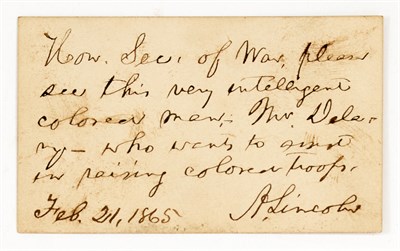 Hon. Sec. of War, please
see this very intelligent
colored man, Mr. Dela-
ny — who wants to assist
in raising colored troops.
Feb. 21, 1865 A. Lincoln